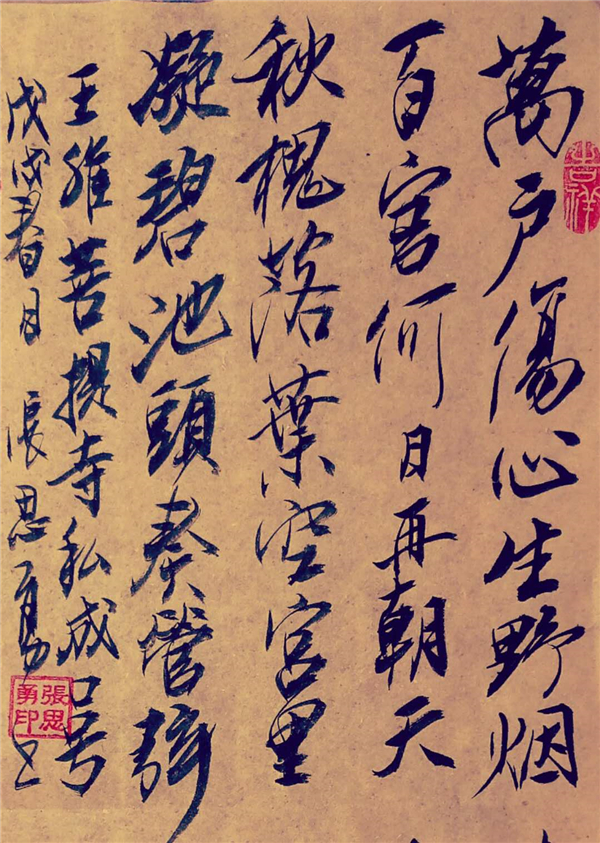 萬户傷心生野烟
百官何日再朝天
秋槐落葉空宫里
凝碧池頭奏管弦
王維菩提寺私成口号
戊戌春月 張思勇书
吉祥
張思勇印